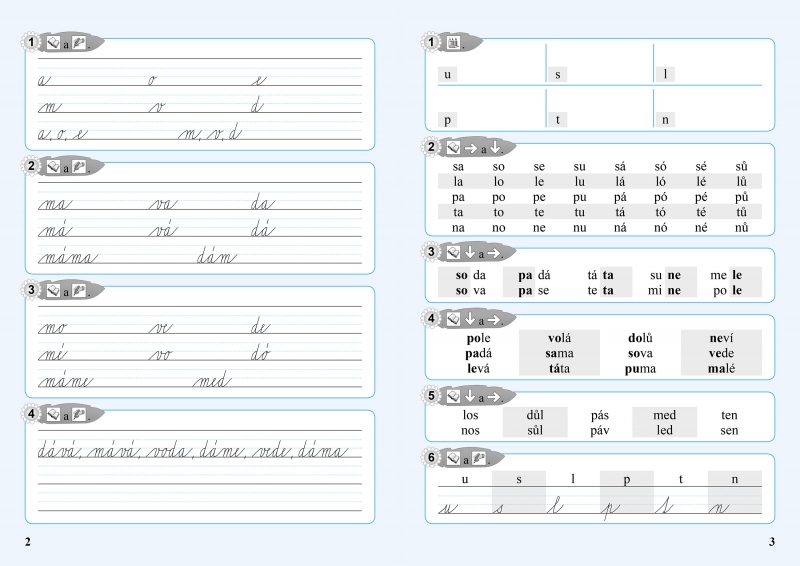 1 a .
a o e
m v d
a, o, e m, v, d
2 a .
ma va da
má vá dá
máma dám
3 a .
mo ve de
mé vo dó
máme med
4 a .
dává, mává, voda, dáme, vede, dáma
2
1 .
u s l
p t n
2 a .
sa so se su sá só sé sů
la lo le lu lá ló lé lů
pa po pe pu pá pó pé pů
ta to te tu tá tó té tů
na no ne nu ná nó né nů
3 a .
so da pa dá tá ta su ne me le
so va pa se te ta mi ne po le
4 a .
pole volá dolů neví
padá sama sova vede
levá táta puma malé
5 a .
los důl pás med ten
nos sůl páv led sen
6 a .
u s l p t n
u s l p t n
3